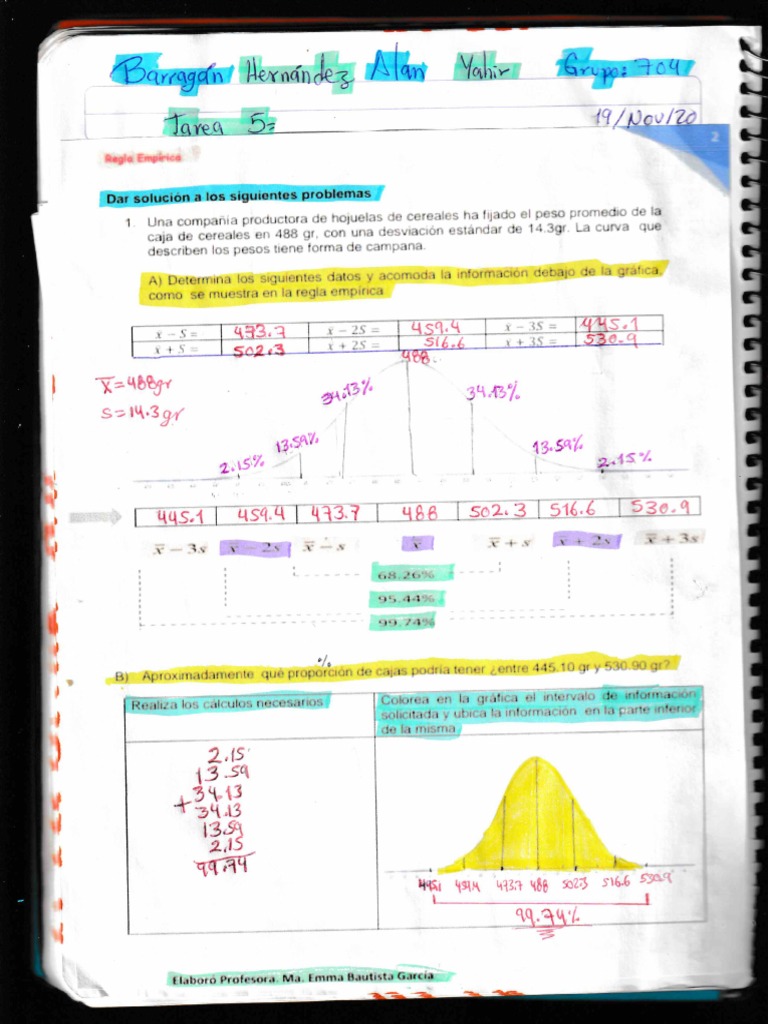 Barragán Hernández Alan Yahir Grupo: 704
Tarea 5=
19/Nov/20
2
Regla Empírica
Dar solución a los siguientes problemas
1. Una compañia productora de hojuelas de cereales ha fijado el peso promedio de la
caja de cereales en 488 gr, con una desviación estándar de 14.3gr. La curva que
describen los pesos tiene forma de campana.
A) Determina los siguientes datos y acomoda la información debajo de la gráfica,
como se muestra en la regla empírica
x̄ − S = 473.7 x̄ − 2S = 459.4 x̄ − 3S = 445.1
x̄ + S = 502.3 x̄ + 2S = 516.6 x̄ + 3S = 530.9
488
x̄ = 488gr
S = 14.3 gr
2.15% 13.59% 34.13% 34.13% 13.59% 2.15%
445.1 459.4 473.7 488 502.3 516.6 530.9
x̄ − 3s x̄ − 2s x̄ − s x̄ x̄ + s x̄ + 2s x̄ + 3s
68.26%
95.44%
99.74%
%
B) Aproximadamente qué proporción de cajas podría tener ¿entre 445.10 gr y 530.90 gr?
Realiza los cálculos necesarios
Colorea en la gráfica el intervalo de información
solicitada y ubica la información en la parte inferior
de la misma
2.15
13.59
+ 34.13
34.13
13.59
2.15
99.74
445.1 459.4 473.7 488 502.3 516.6 530.9
99.74%
Elaboró Profesora. Ma. Emma Bautista García